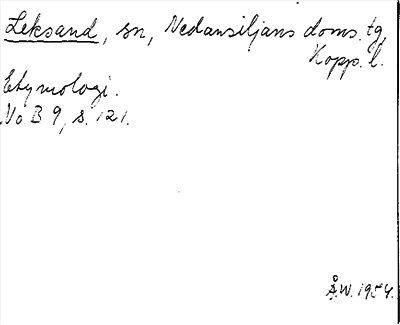 Leksand, sn, Nedansiljans doms. tg,
Kopp. l.
Etymologi.
No B 9, s. 121.
Å.W. 1954.